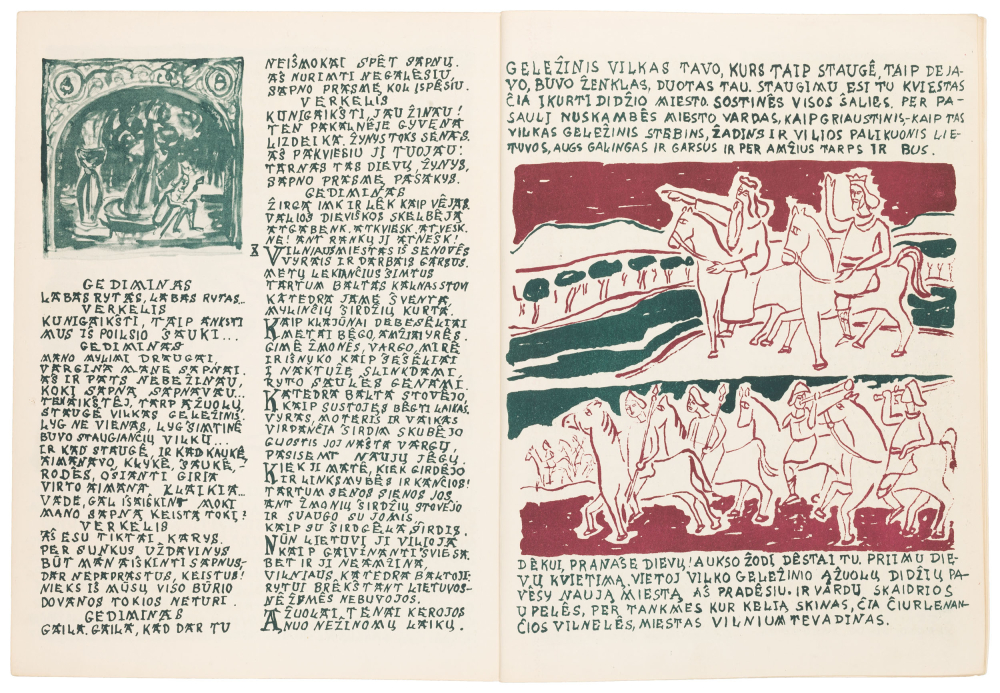 GEDIMINAS
LABAS RYTAS, LABAS RYTAS...
VERKELIS
KUNIGAIKŠTI, TAIP ANKSTI
MUS IŠ POILSIO ŠAUKI...
GEDIMINAS
MANO MYLIMI DRAUGAI
VARGINA MANE SAPNAI.
AŠ IR PATS NEBEŽINAU,
KOKĮ SAPNĄ SAPNAVAU...
TENAIKŠTĖJ, TARP ĄŽUOLŲ,
STAUGĖ VILKAS GELEŽINIS,
LYG NE VIENAS, LYG ŠIMTINĖ
BUVO STAUGIANČIŲ VILKŲ...
IR KAD STAUGĖ, IR KAD KAUKĖ,
AIMANAVO, KLYKĖ, ŠAUKĖ, -
RODĖS, OŠIANTI GIRIA
VIRTO AIMANA KLAIKIA...
VADE, GAL IŠAIŠKINT MOKI
MANO SAPNĄ KEISTĄ TOKĮ?
VERKELIS
AŠ ESU TIKTAI KARYS.
PER SUNKUS UŽDAVINYS
BŪT MAN AIŠKINTI SAPNUS,
DAR NEPAPRASTUS, KEISTUS!
NIEKS IŠ MŪSŲ VISO BŪRIO
DOVANOS TOKIOS NETURI.
GEDIMINAS
GAILA, GAILA, KAD DAR TU
NEIŠMOKAI SPĖT SAPNŲ.
AŠ NURIMTI NEGALĖSIU,
SAPNO PRASMĘ KOL ĮSPĖSIU.
VERKELIS
KUNIGAIKŠTI, JAU ŽINAU!
TEN PAKALNĖJE GYVENA
LIZDEIKA. ŽYNYS TOKS SENAS.
AŠ PAKVIESIU JĮ TUOJAU!
TARNAS TAS DIEVŲ, ŽYNYS,
SAPNO PRASMĘ PASAKYS.
GEDIMINAS
ŽIRGĄ IMK IR LĖK KAIP VĖJAS
VALIOS DIEVIŠKOS SKELBĖJĄ
ATGABENK, ATKVIESK, ATVESK.
NE! ANT RANKŲ JĮ ATNEŠK!
VILNIAUS MIESTAS IŠ SENOVĖS
VYRAIS IR DARBAIS GARSUS.
METŲ LEKIANČIUS ŠIMTUS
TARTUM BALTAS KALNAS STOVI
KATEDRA JAME ŠVENTA,
MYLINČIŲ ŠIRDŽIŲ KURTA.
KAIP KLAJŪNAI DEBESĖLIAI
METAI BĖGO, AMŽIAI YRĖS.
GIMĖ ŽMONĖS, VARGO, MIRĖ
IR IŠNYKO KAIP ŠEŠĖLIAI
Į NAKTUŽĘ SLINKDAMI,
RYTO SAULĖS GENAMI.
KATEDRA BALTA STOVĖJO,
KAIP SUSTOJĘS BĖGTI LAIKAS.
VYRAS, MOTERIS IR VAIKAS
VIRPANČIA ŠIRDIM SKUBĖJO
GUOSTIS JOJ NAŠTA VARGŲ,
PASISEMT NAUJŲ JĖGŲ.
KIEK JI MATĖ, KIEK GIRDĖJO
IR LINKSMYBĖS IR KANČIOS!
TARTUM SENOS SIENOS JOS
ANT ŽMONIŲ ŠIRDŽIŲ STOVĖJO
IR SUAUGO SU JOMIS,
KAIP SU ŠIRDGĖLA ŠIRDIS.
NŪN LIETUVĮ JI VILIOJA
KAIP GAIVINANTI ŠVIESA,
BET IR JI NE AMŽINA,
VILNIAUS KATEDRA BALTOJI:
RYTUI BRĖKŠTANT LIETUVOS
NĖ ŽYMĖS NEBUVO JOS.
ĄŽUOLAI TENAI KEROJOS
NUO NEŽINOMŲ LAIKŲ.
GELEŽINIS VILKAS TAVO, KURS TAIP STAUGĖ, TAIP DEJA-
VO, BUVO ŽENKLAS, DUOTAS TAU. STAUGIMU ESI TU KVIESTAS
ČIA ĮKURTI DIDŽIO MIESTO. SOSTINĖS VISOS ŠALIES. PER PA-
SAULĮ NUSKAMBĖS MIESTO VARDAS, KAIP GRIAUSTINIS,-KAIP TAS
VILKAS GELEŽINIS STEBINS, ŽADINS IR VILIOS PALIKUONIS LIE-
TUVOS, AUGS GALINGAS IR GARSUS IR PER AMŽIUS TARPS IR BUS.
DĖKUI, PRANAŠE DIEVŲ! AUKSO ŽODĮ DĖSTAI TU. PRIIMU DIE-
VŲ KVIETIMĄ. VIETOJ VILKO GELEŽINIO ĄŽUOLŲ DIDŽIŲ PA-
VĖSY NAUJĄ MIESTĄ AŠ PRADĖSIU. IR VARDU SKAIDRIOS
UPELĖS, PER TANKMES KUR KELIĄ SKINAS, ČIA ČIURLENAN-
ČIOS VILNELĖS, MIESTAS VILNIUM TEVADINAS.